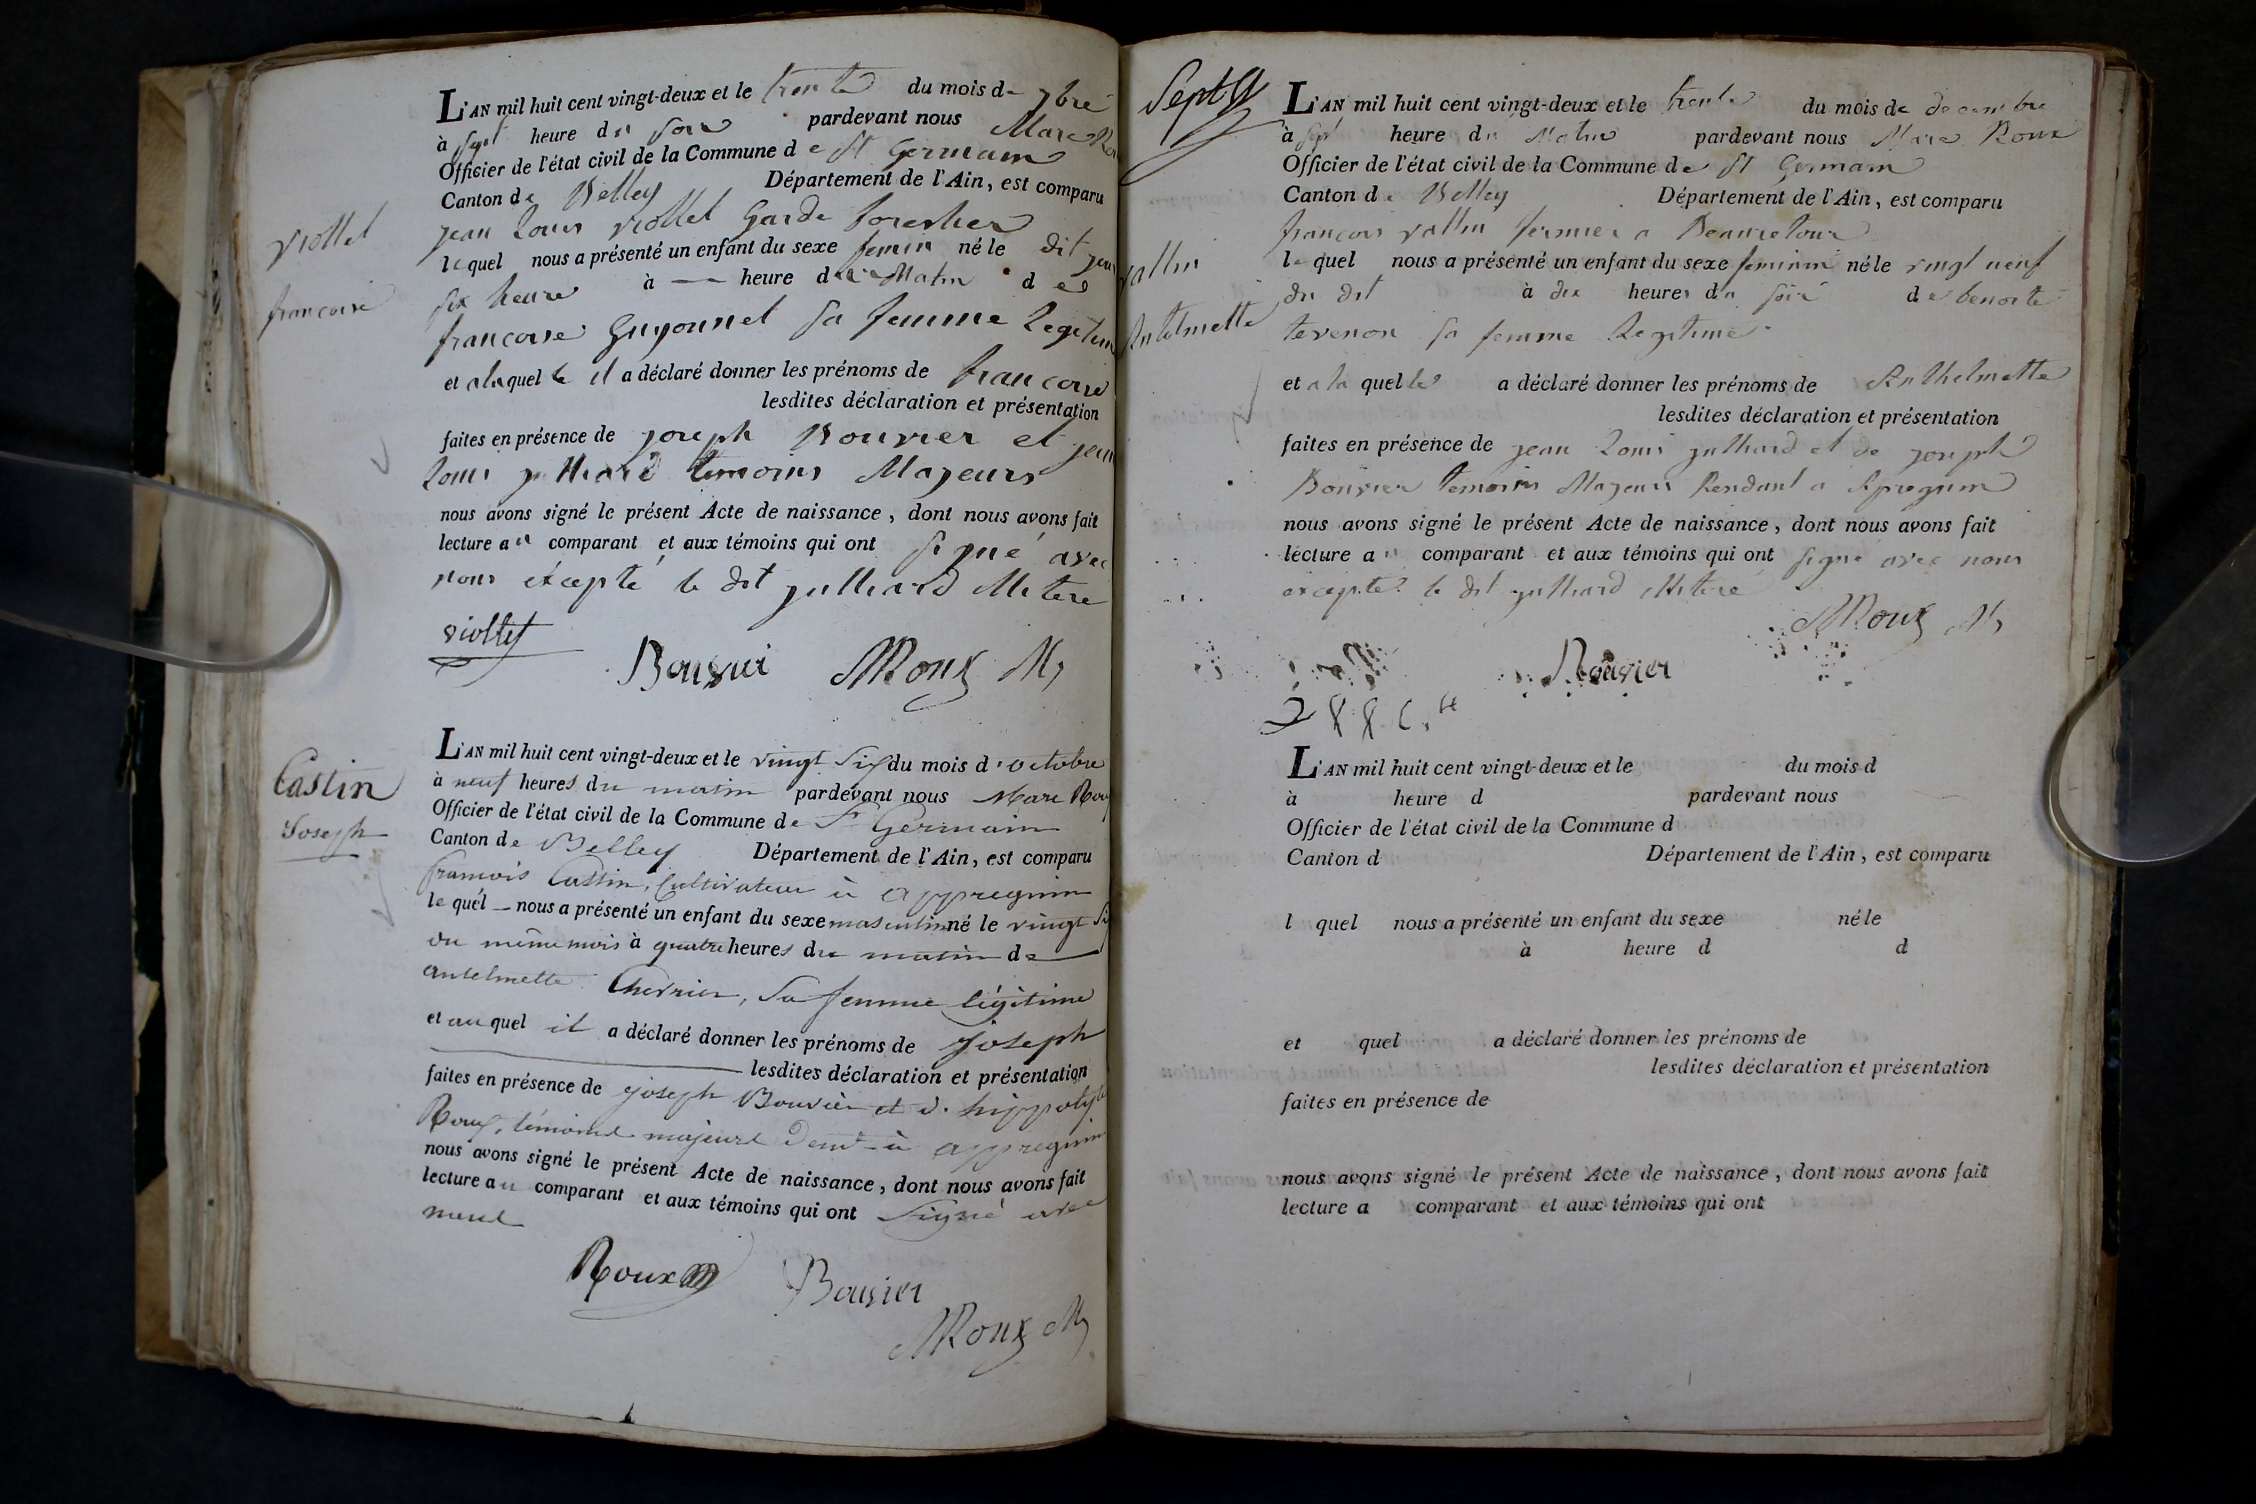 L'AN mil huit cent vingt-deux et le trente du mois de 7bre
à sept heure du soir pardevant nous Marc Rou
Officier de l'état civil de la Commune de St Germain
Canton de Belley Département de l'Ain, est comparu
jean Louis viollet Garde forestier
lequel nous a présenté un enfant du sexe femin né le dit jour
six heure à — heure du Matin de
francoise Guyonnet sa femme Legitime
et a laquelle il a déclaré donner les prénoms de francoise
lesdites déclaration et présentation
faites en présence de joseph Bouvier et jean
Louis julliard temoins Majeurs
nous avons signé le présent Acte de naissance, dont nous avons fait
lecture au comparant et aux témoins qui ont signé avec
nous éxcepté le dit julliard
viollet
Bouvier MRoux
viollet
francoise
L'AN mil huit cent vingt-deux et le vingt six du mois d'octobre
à neuf heures du matin pardevant nous Marc Roux
Officier de l'état civil de la Commune de St Germain
Canton de Belley Département de l'Ain, est comparu
francois Castin, Cultivateur à appregnin
lequel — nous a présenté un enfant du sexe masculin né le vingt six
du même mois à quatre heures du matin de
antelmette Chevrier, sa femme légitime
et auquel il a déclaré donner les prénoms de joseph
lesdites déclaration et présentation
faites en présence de joseph Bouvier et d. hippolyte
Roux, témoins majeurs demt à appregnin
nous avons signé le présent Acte de naissance, dont nous avons fait
lecture au comparant et aux témoins qui ont signé avec
nous
Roux Bouvier
MRoux
Castin
Joseph
Sept
L'AN mil huit cent vingt-deux et le trente du mois de decembre
à sept heure du Matin pardevant nous Marc Roux
Officier de l'état civil de la Commune de St Germain
Canton de Belley Département de l'Ain, est comparu
francois vallin fermier a Beauretour
lequel nous a présenté un enfant du sexe feminin né le vingt neuf
du dit à dix heures du soir de benoite
tevenon sa femme Legitime
et a la quelle a déclaré donner les prénoms de Anthelmette
lesdites déclaration et présentation
faites en présence de jean Louis julliard et de joseph
Bouvier temoins Majeurs Residant a Apregnin
nous avons signé le présent Acte de naissance, dont nous avons fait
lecture au comparant et aux témoins qui ont signé avec nous
excepté le dit julliard
MRoux
Bouvier
vallin
Antelmette
L'AN mil huit cent vingt-deux et le du mois d
à heure d pardevant nous
Officier de l'état civil de la Commune d
Canton d Département de l'Ain, est comparu
l quel nous a présenté un enfant du sexe né le
à heure d d
et quel a déclaré donner les prénoms de
lesdites déclaration et présentation
faites en présence de
nous avons signé le présent Acte de naissance, dont nous avons fait
lecture a comparant et aux témoins qui ont